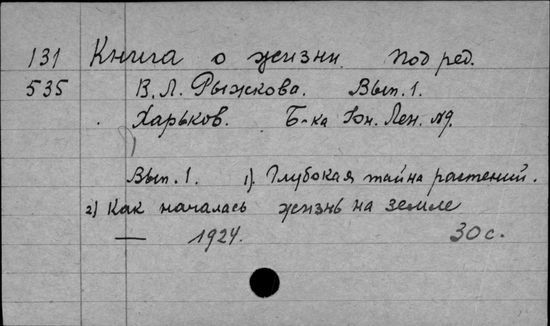 131 Книга о жизни. Под ред.
535 В. Л. Рыжкова. Вып. 1.
Харьков. Б-ка Юн. Лен.
Вып. 1. 1). Глубокая тайна растений.
2) Как началась жизнь на земле
— 1924. 30 с.